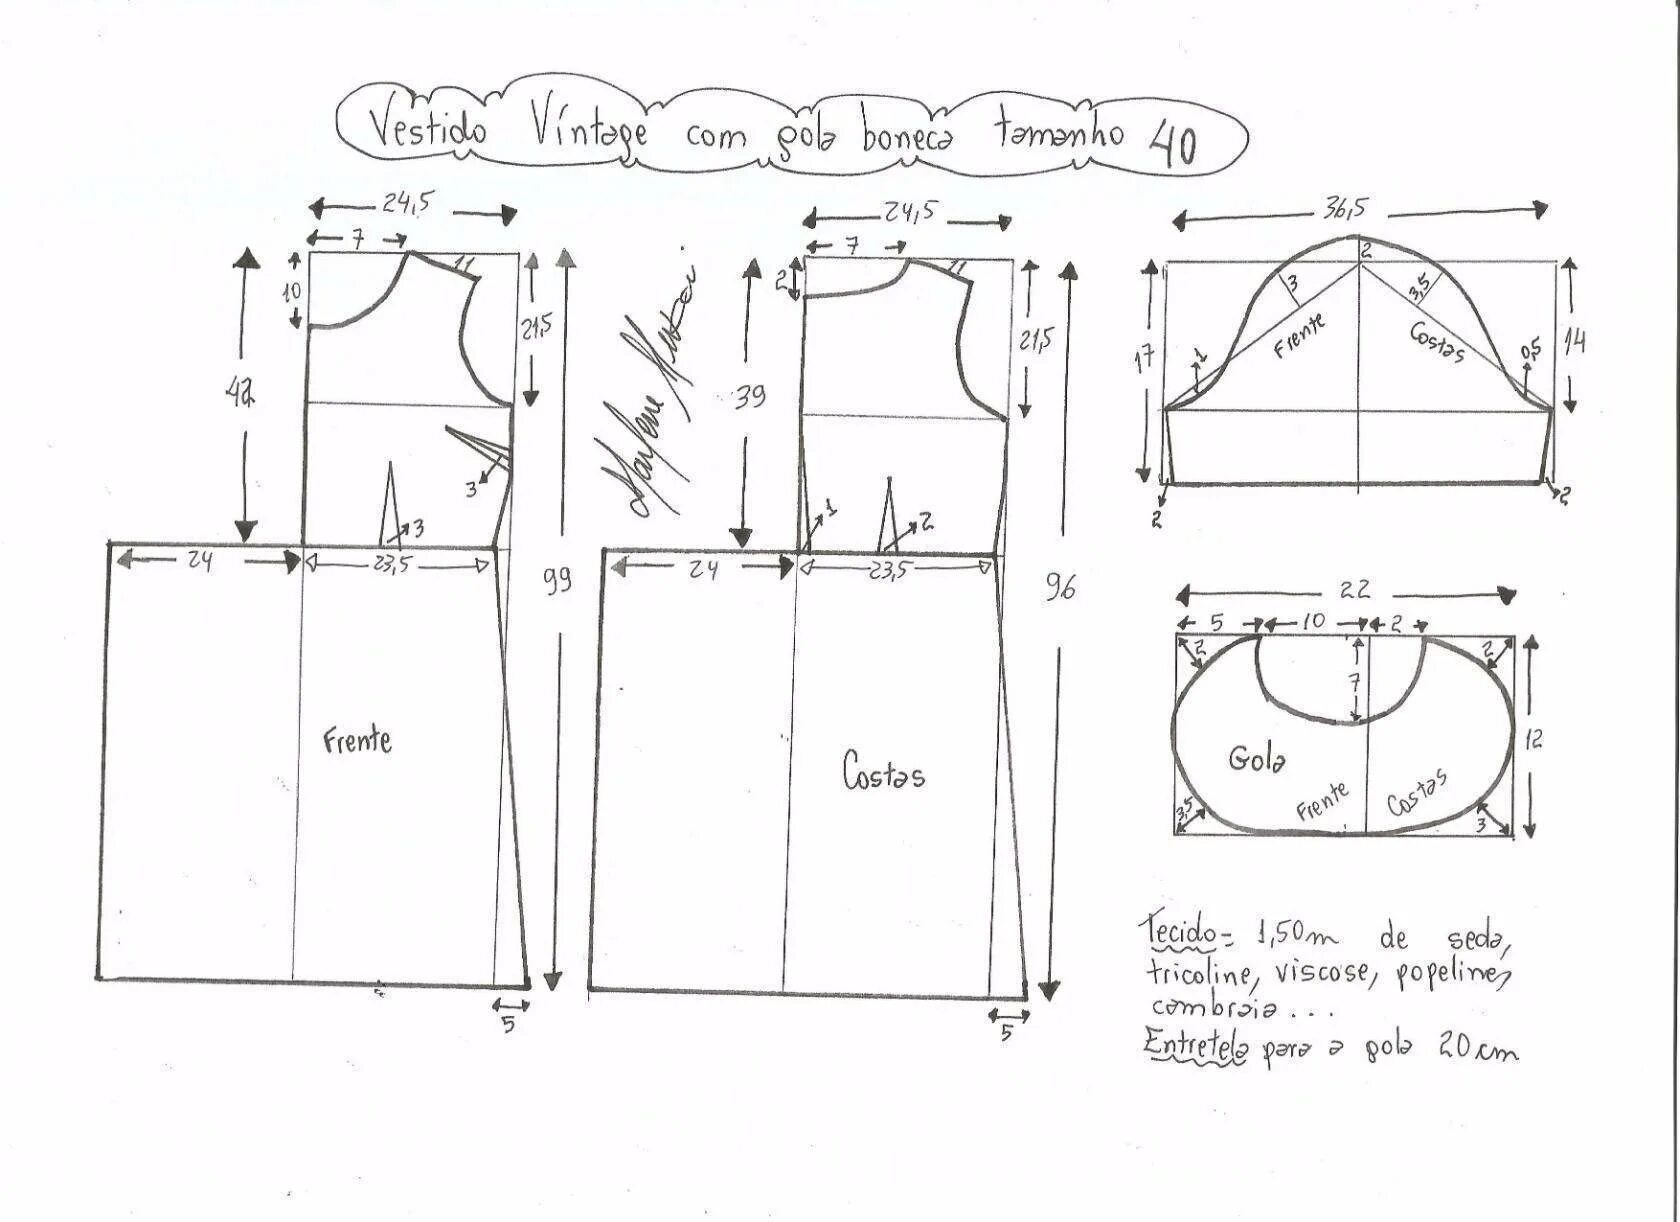 Vestido Víntage com gola boneca tamanho 40
24,5
7
11
10
42
21,5
3
3
24
23,5
99
Frente
5
24,5
7
11
2
39
21,5
1
2
24
23,5
96
Costas
5
36,5
2
3
3,5
Frente
Costas
1
0,5
17
14
2
2
22
5
10
2
2
2
7
12
Gola
Frente
Costas
3,5
3
Tecido= 1,50m de seda,
tricoline, viscose, popeline,
cambraia...
Entretela para a gola 20cm